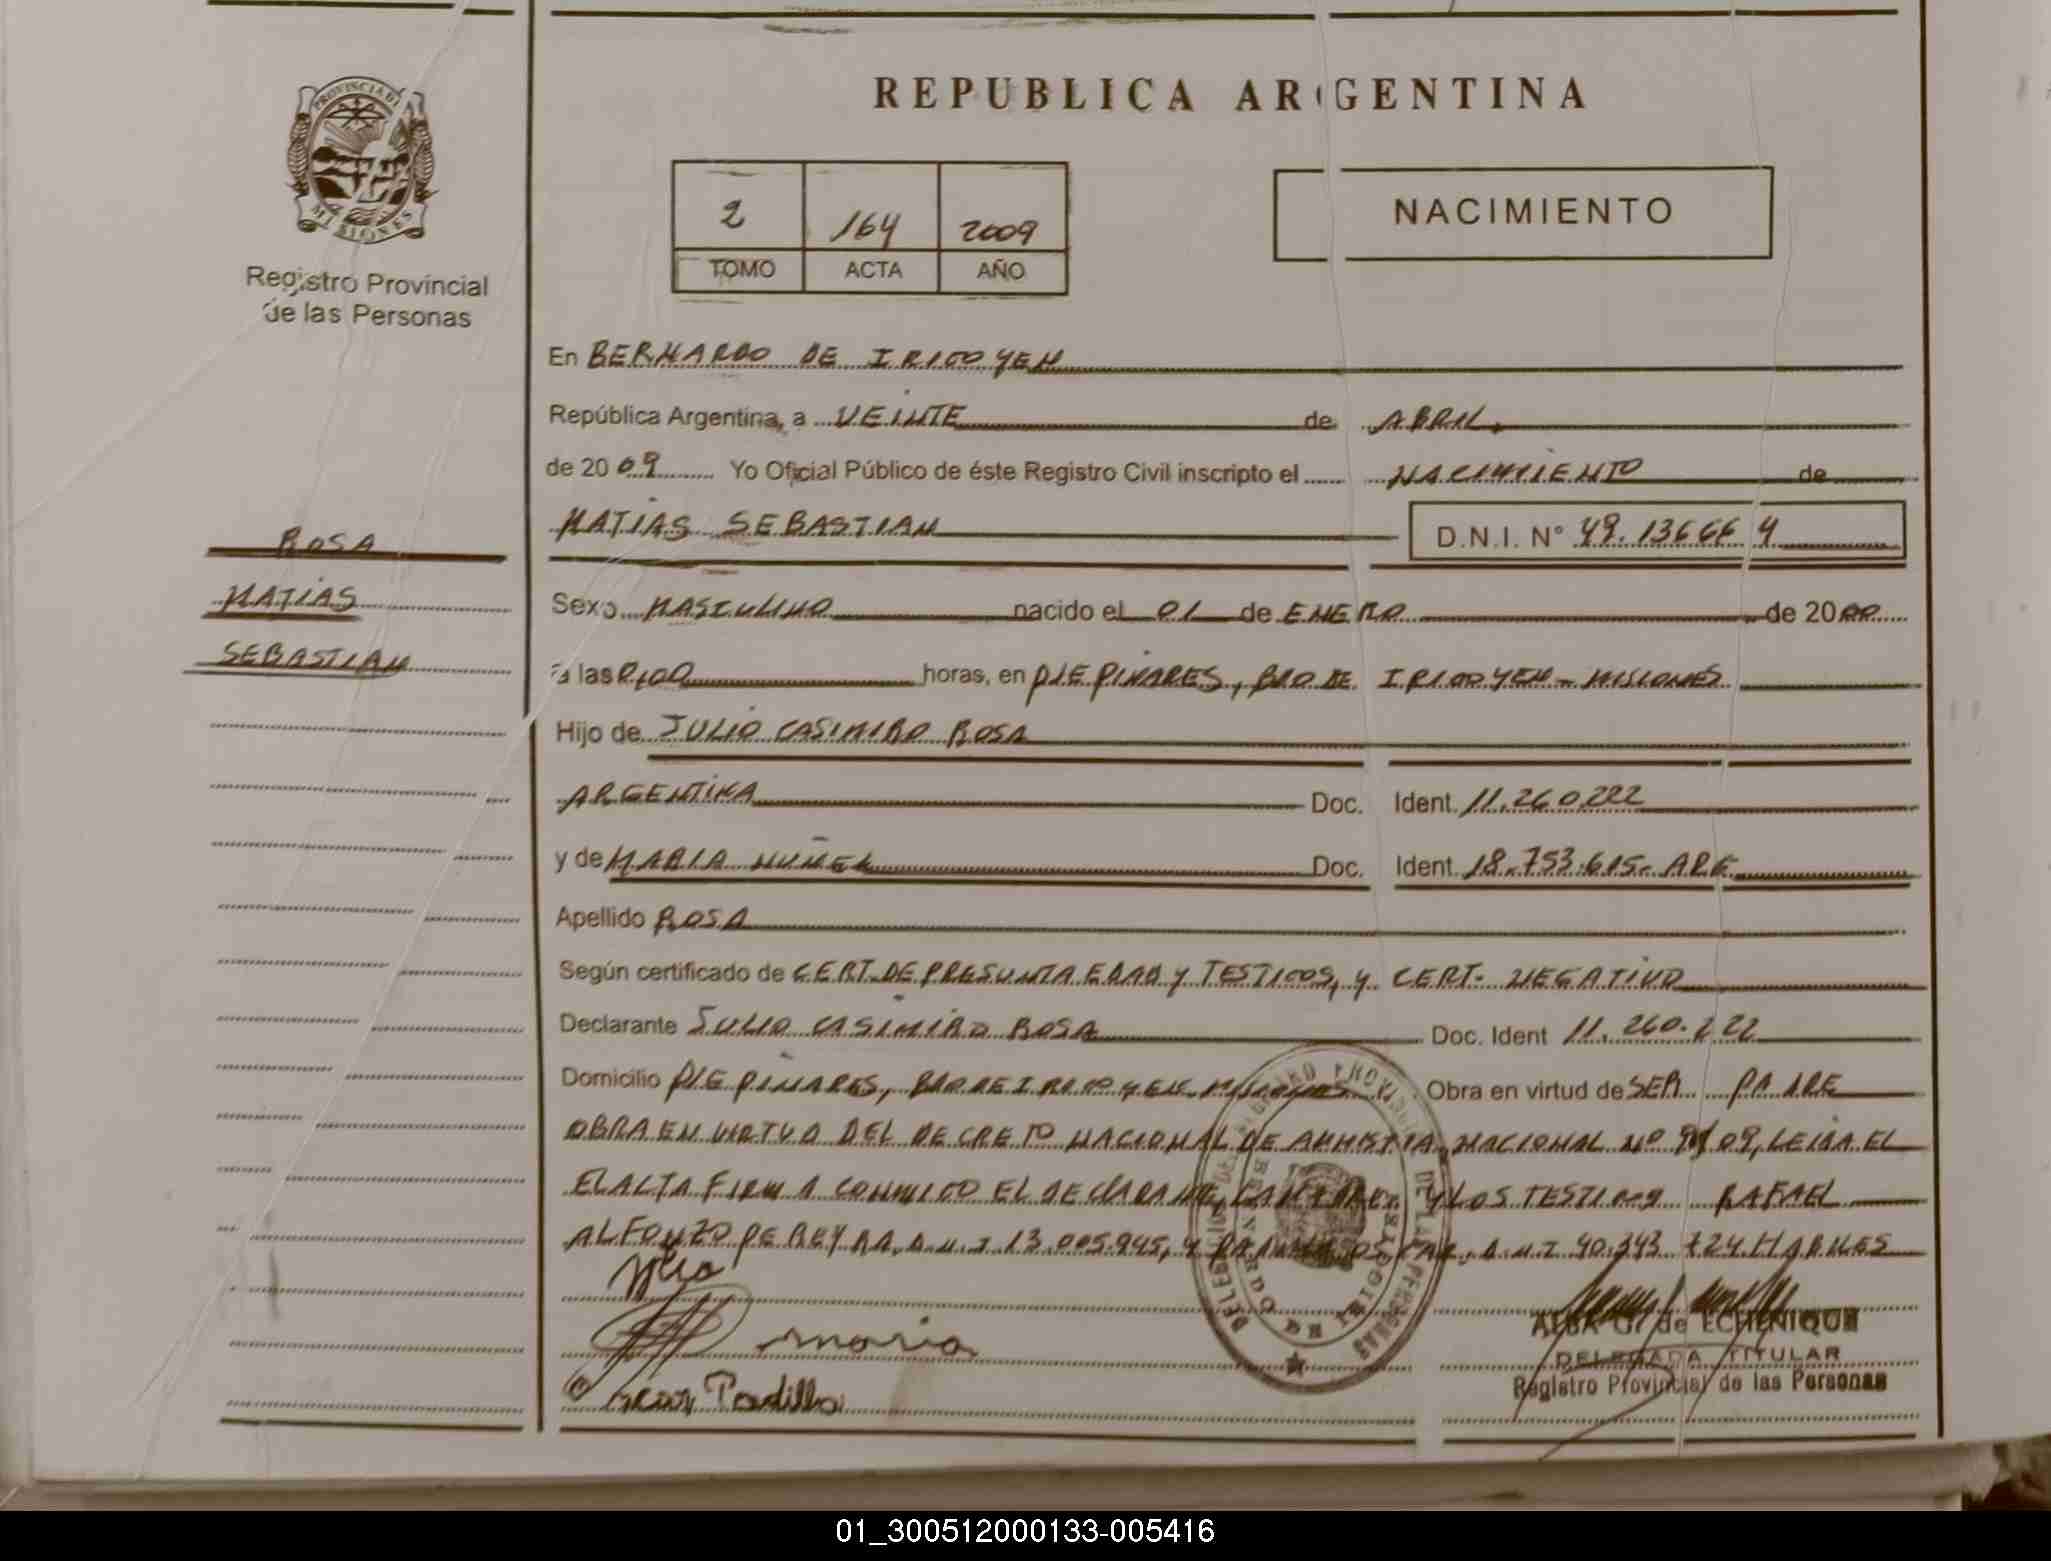 PROVINCIA DE
MISIONES
Registro Provincial
de las Personas
ROSA
MATIAS
SEBASTIAN
REPUBLICA ARGENTINA
2 164 2009
TOMO ACTA AÑO
NACIMIENTO
En BERNARDO DE IRIGOYEN
República Argentina, a VEINTE de ABRIL
de 20 09 Yo Oficial Público de éste Registro Civil inscripto el NACIMIENTO de
MATIAS SEBASTIAN D.N.I. Nº 49.136664
Sexo MASCULINO nacido el 01 de ENERO de 20
a las horas, en PJE PINARES, BDO DE IRIGOYEN - MISIONES
Hijo de JULIO CASIMIRO ROSA
ARGENTINA Doc. Ident. 11.260.222
y de MARIA NUÑEZ Doc. Ident. 18.753.615- ARG
Apellido ROSA
Según certificado de CERT. DE PRESUNTA EDAD Y TESTIGOS, Y CERT. NEGATIVO
Declarante JULIO CASIMIRO ROSA Doc. Ident 11.260.222
Domicilio PJE PINARES, BDO DE IRIGOYEN MISIONES Obra en virtud de SER PADRE
OBRA EN VIRTUD DEL DECRETO NACIONAL DE AMNISTIA NACIONAL Nº 90/09, LEIDA EL
EL ACTA FIRMA CONMIGO EL DECLARANTE, Y LOS TESTIGOS RAFAEL
ALFONZO PEREYRA, D.N.I 13.005.945, Y D.N.I 40.343.724 HABILES
Julio
maria
Oscar Padilla
BERNARDO DE IRIGOYEN
ALBA G. de ECHENIQUE
DELEGADA TITULAR
Registro Provincial de las Personas
01_300512000133-005416